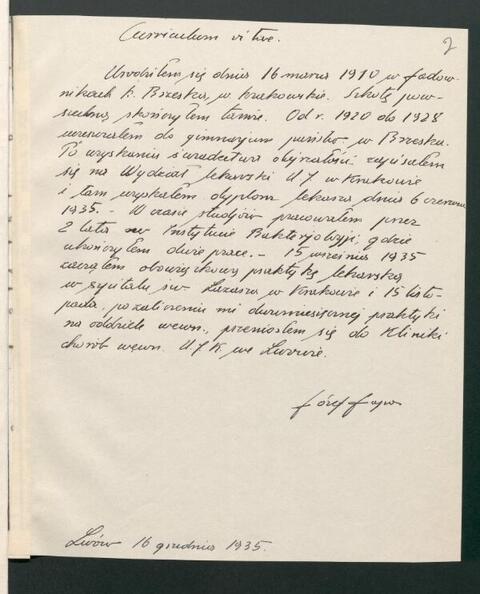 2
Curriculum vitae.
Urodziłem się dnia 16 marca 1910 w Jadow-
nikach k. Brzeska, w. Krakowskie. Szkołę pow-
szechną skończyłem tamże. Od r. 1920 do 1928
uczęszczałem do gimnazjum państw. w Brzesku.
Po uzyskaniu świadectwa dojrzałości zapisałem
się na Wydział lekarski U J w Krakowie
i tam uzyskałem dyplom lekarza dnia 6 czerwca
1935. - W czasie studjów pracowałem przez
2 lata w Instytucie Bakterjologji, gdzie
ukończyłem dwie prace. - 15 września 1935
zacząłem obowiązkową praktykę lekarską
w szpitalu św. Łazarza w Krakowie i 15 listo-
pada, po zaliczeniu mi dwumiesięcznej praktyki
na oddziele wewn., przeniosłem się do Kliniki
chorób wewn. U. J. K. we Lwowie.
Józef
Lwów 16 grudnia 1935.